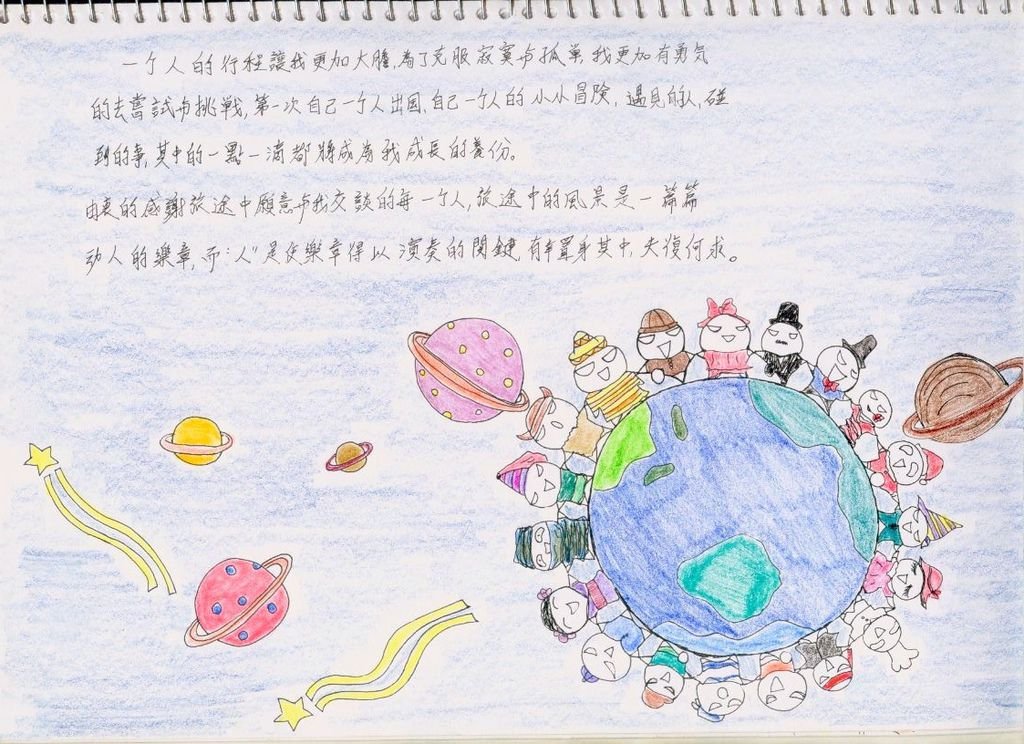 一个人的行程讓我更加大膽,為了克服寂寞与孤单,我更加有勇気
的去嘗試与挑戦,第一次自己一个人出国,自己一个人的小小冒険,遇見的人,碰
到的事,其中的一點一滴都將成為我成長的養份。
由衷的感謝旅途中願意与我交談的每一个人,旅途中的風景是一篇篇
动人的樂章,而“人”是使樂章得以演奏的関鍵,有幸置身其中,夫復何求。